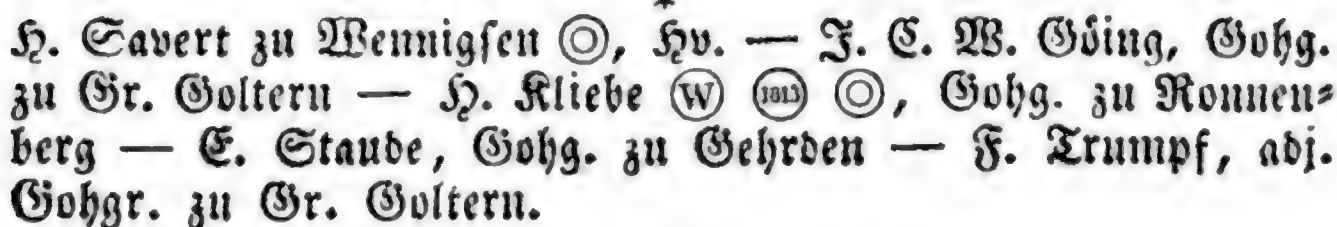 H. Savert zu Wennigsen ◎, Hv. — J. C. W. Göing, Gohg.
zu Gr. Goltern — H. Kliebe Ⓦ (1813) ◎, Gohg. zu Ronnen⸗
berg — E. Staude, Gohg. zu Gehrden — F. Trumpf, adj.
Gohgr. zu Gr. Goltern.